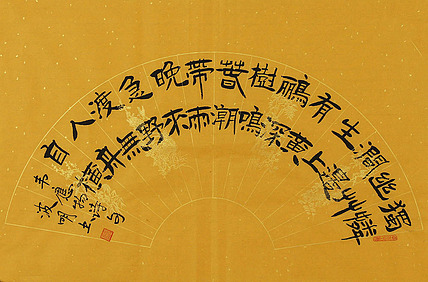 獨憐
幽艸
澗邊
生上
有黃
鸝深
樹鳴
萅潮
帶雨
晚來
急野
渡無
人舟
自橫
韋應物詩句
波明